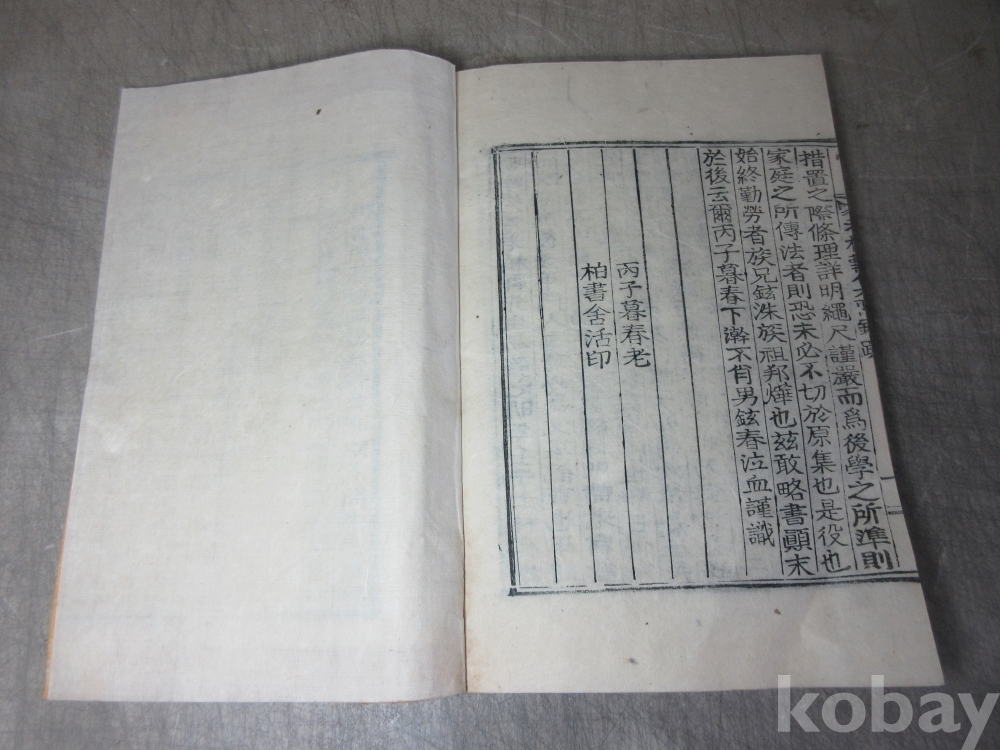 措置之際條理詳明繩尺謹嚴而爲後學之所準則
家庭之所傳法者則恐未必不切於原集也是役也
始終勤勞者族兄鉉洙族祖邦燁也玆敢略書顚末
於後云爾丙子暮春下澣不肖男鉉春泣血謹識
丙子暮春老
柏書舍活印
kobay